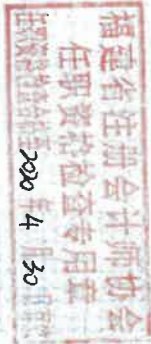 福建省注册会计师协会
任职资格检查专用章
2020 年 4 月 30